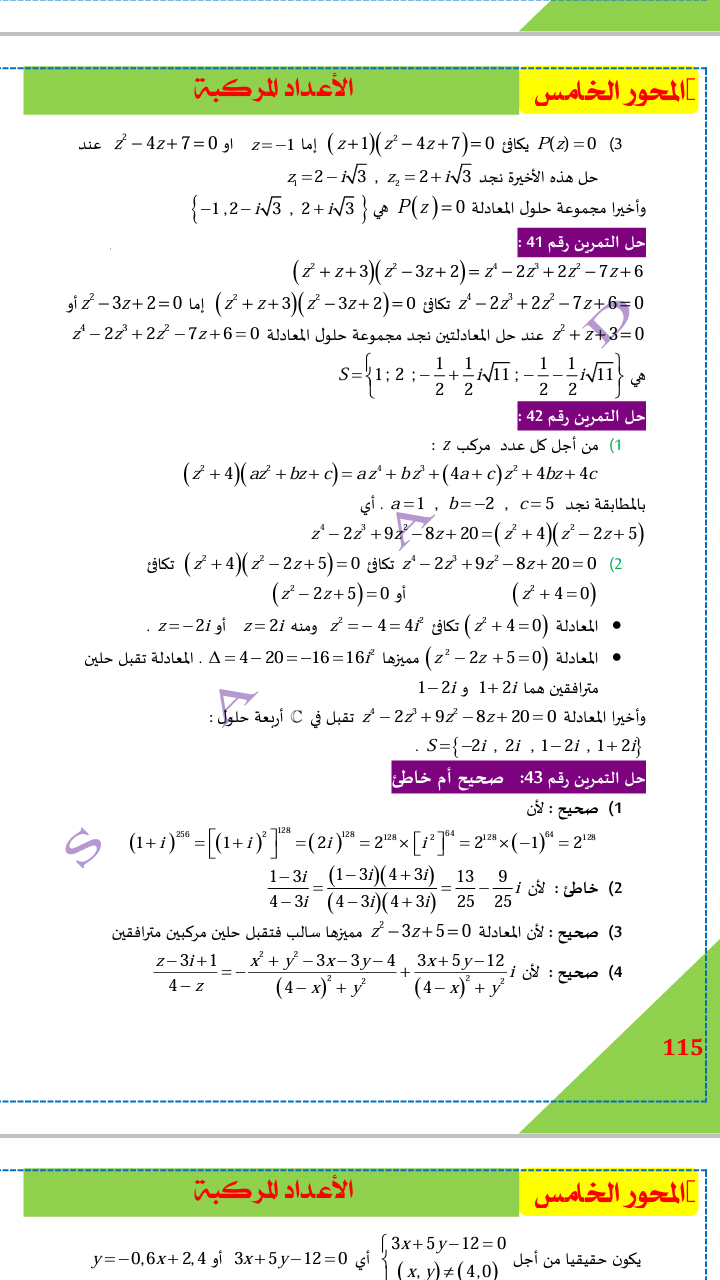 المحور الخامس
الأعداد المركبة
3) P(z)=0 يكافئ (z+1)(z²−4z+7)=0 إما z=−1 او z²−4z+7=0 عند
حل هذه الأخيرة نجد z₁=2−i√3 , z₂=2+i√3
وأخيرا مجموعة حلول المعادلة P(z)=0 هي {−1,2−i√3 , 2+i√3}
حل التمرين رقم 41 :
(z²+z+3)(z²−3z+2)=z⁴−2z³+2z²−7z+6
z⁴−2z³+2z²−7z+6=0 تكافئ (z²+z+3)(z²−3z+2)=0 إما z²−3z+2=0 أو
z²+z+3=0 عند حل المعادلتين نجد مجموعة حلول المعادلة z⁴−2z³+2z²−7z+6=0
هي S={1; 2 ;−1/2+1/2 i√11 ;−1/2−1/2 i√11}
حل التمرين رقم 42 :
1) من أجل كل عدد مركب z :
(z²+4)(az²+bz+c)=az⁴+bz³+(4a+c)z²+4bz+4c
بالمطابقة نجد a=1 , b=−2 , c=5 . أي
z⁴−2z³+9z²−8z+20=(z²+4)(z²−2z+5)
2) z⁴−2z³+9z²−8z+20=0 تكافئ (z²+4)(z²−2z+5)=0 تكافئ
(z²+4=0) أو (z²−2z+5)=0
• المعادلة (z²+4=0) تكافئ z²=−4=4i² ومنه z=2i أو z=−2i .
• المعادلة (z²−2z+5=0) مميزها Δ=4−20=−16=16i² . المعادلة تقبل حلين
مترافقين هما 1+2i و 1−2i
وأخيرا المعادلة z⁴−2z³+9z²−8z+20=0 تقبل في ℂ أربعة حلول :
S={−2i , 2i , 1−2i , 1+2i} .
حل التمرين رقم 43: صحيح أم خاطئ
1) صحيح : لأن
(1+i)²⁵⁶=[(1+i)²]¹²⁸=(2i)¹²⁸=2¹²⁸×[i²]⁶⁴=2¹²⁸×(−1)⁶⁴=2¹²⁸
2) خاطئ : لأن (1−3i)/(4−3i)=(1−3i)(4+3i)/(4−3i)(4+3i)=13/25−9/25 i
3) صحيح : لأن المعادلة z²−3z+5=0 مميزها سالب فتقبل حلين مركبين مترافقين
4) صحيح : لأن (z−3i+1)/(4−z)=−(x²+y²−3x−3y−4)/((4−x)²+y²)+(3x+5y−12)/((4−x)²+y²) i
S A A D
115
المحور الخامس
الأعداد المركبة
يكون حقيقيا من أجل {3x+5y−12=0 أي 3x+5y−12=0 أو y=−0,6x+2,4
(x,y)≠(4,0)